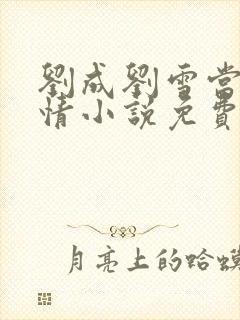 劉成劉雪當
情小說免費
月亮上的蛤蟆